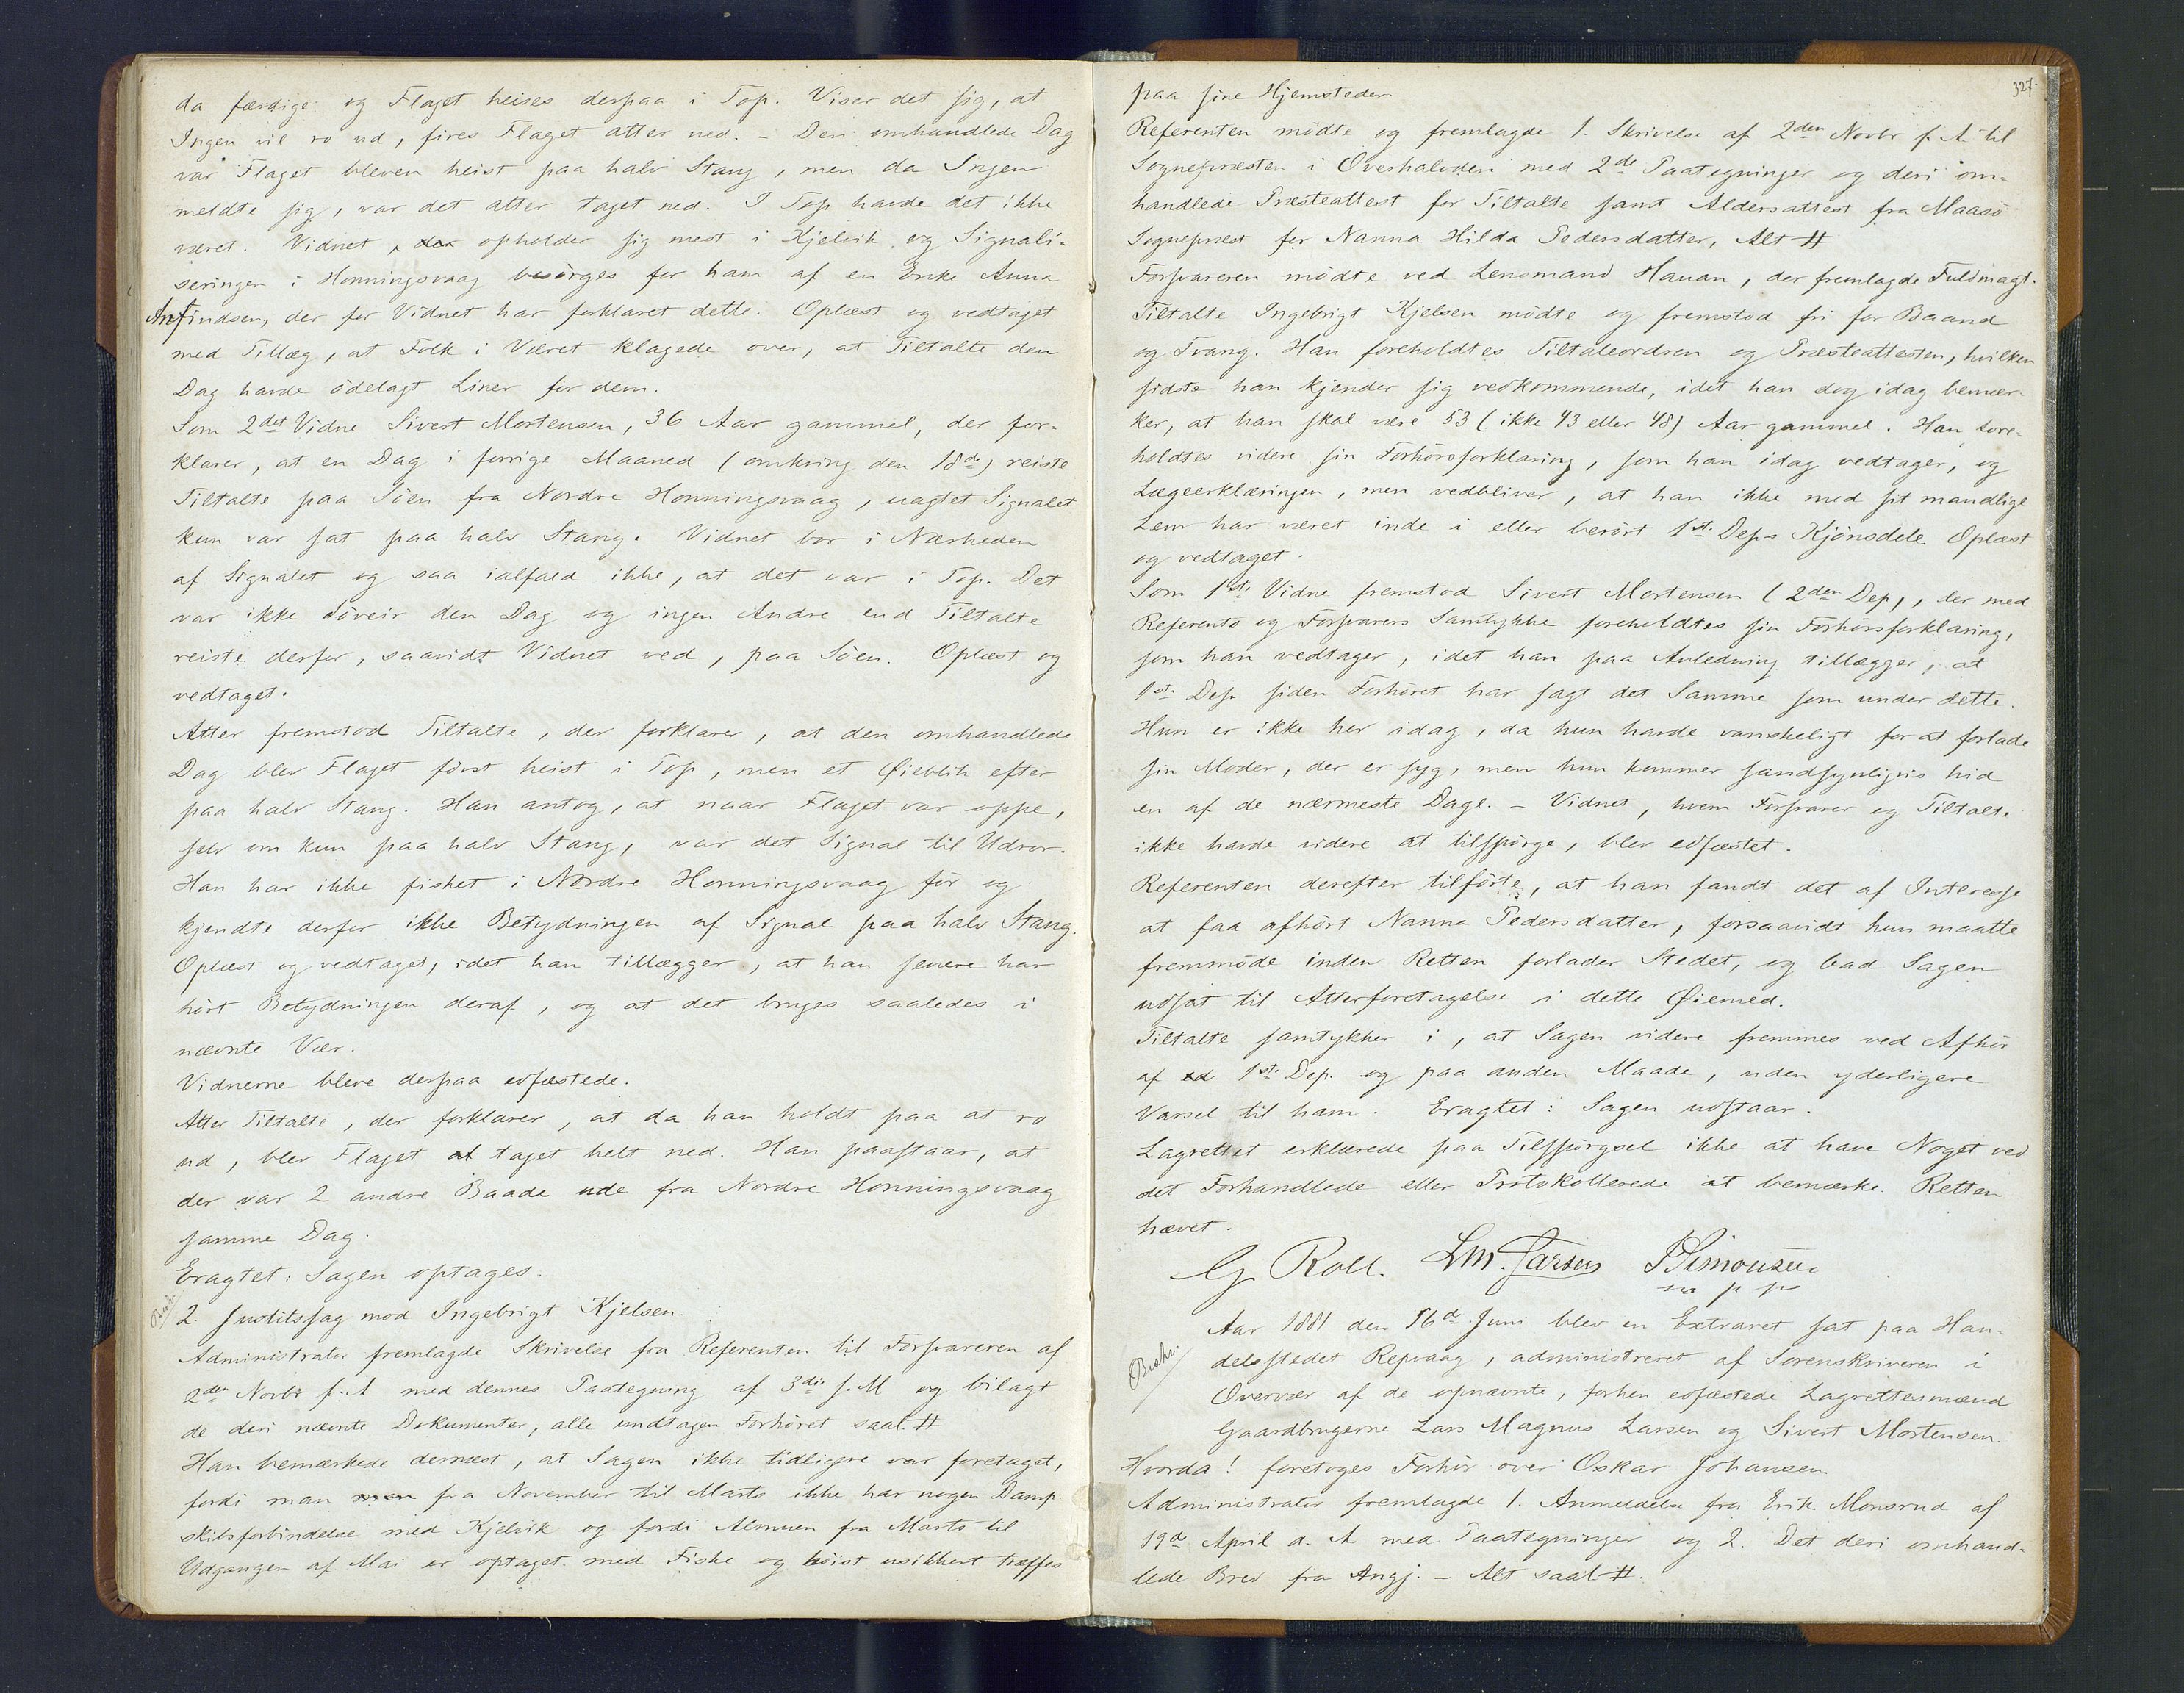 da færdige og Flaget heises derpaa i Top. Viser det sig, at
Ingen vil ro ud, fires Flaget atter ned. - Den omhandlede Dag
var Flaget bleven heist paa halv Stang, men da Ingen
meldte sig, var det atter taget ned. I Top havde det ikke
været. Vidnet, der opholder sig mest i Kjelvik og Signali-
seringen i Honningsvaag besörges for ham af en Enke Anna
Anfindsen, der for Vidnet har forklaret dette. Oplæst og vedtaget
med Tillæg, at Folk i Været klagede over, at Tiltalte den
Dag havde ödelagt Liner for dem.
Som 2det Vidne Sivert Mortensen, 36 Aar gammel, der for-
klarer, at en Dag i forrige Maaned (omkring den 18de) reiste
Tiltalte paa Söen fra Nordre Honningsvaag, uagtet Signalet
kun var sat paa halv Stang. Vidnet bor i Nærheden
af Signalet og saa ialfald ikke, at det var i Top. Det
var ikke Söveir den Dag og ingen Andre end Tiltalte
reiste derfor, saavidt Vidnet ved, paa Söen. Oplæst og
vedtaget.
Atter fremstod Tiltalte, der forklarer, at den omhandlede
Dag blev Flaget först heist i Top, men et Øieblik efter
paa halv Stang. Han antog, at naar Flaget var oppe,
selv om kun paa halv Stang, var det Signal til Udror.
Han har ikke fisket i Nordre Honningsvaag för og
kjendte derfor ikke Betydningen af Signal paa halv Stang.
Oplæst og vedtaget, idet han tillægger, at han senere har
hört Betydningen deraf, og at det bruges saaledes i
nævnte Vær.
Vidnerne bleve derpaa edfæstede.
Atter Tiltalte, der forklarer, at da han holdt paa at ro
ud, blev Flaget at taget helt ned. Han paastaar, at
der var 2 andre Baade ude fra Nordre Honningsvaag
samme Dag.
Eragtet: Sagen optages.
2. Justitssag mod Ingebrigt Kjelsen.
Administrator fremlagde Skrivelse fra Referenten til Forsvareren af
2den Novbr f. A med dennes Paategning af 3die s. M og bilagt
de deri nævnte Dokumenter, alle undtagen Forhöret saal. #
Han bemærkede dernæst, at Sagen ikke tidligere var foretaget,
fordi man men fra November til Marts ikke har nogen Damp-
skibsforbindelse med Kjelvik og fordi Almuen fra Marts til
Udgangen af Mai er optaget med Fiske og höist usikkert træffes
327.
paa sine Hjemsteder.
Referenten mödte og fremlagde 1. Skrivelse af 2den Novbr f. A til
Sognepræsten i Overhalvden med 2de Paategninger og deri om-
handlede Præsteattest for Tiltalte samt Aldersattest fra Maasö
Sognepræst for Nanna Hilda Pedersdatter, Alt #
Forsvareren mödte ved Lensmand Hauan, der fremlagde Fuldmagt.
Tiltalte Ingebrigt Kjelsen mödte og fremstod fri for Baand
og Tvang. Han foreholdtes Tiltaleordren og Præsteattesten, hvilken
sidste han kjender sig vedkommende, idet han dog idag bemær-
ker, at han skal være 53 (ikke 43 eller 48) Aar gammel. Han fore-
holdtes videre sin Forhörsforklaring, som han idag vedtager, og
Lægeerklæringen, men vedbliver, at han ikke med sit mandlige
Lem har været inde i eller berört 1ste Dep-s Kjönsdele. Oplæst
og vedtaget.
Som 1ste Vidne fremstod Sivert Mortensen (2den Dep), der med
Referents og Forsvarers Samtykke foreholdtes sin Forhörsforklaring,
som han vedtager, idet han paa Anledning tillægger, at
1ste Dep. siden Forhöret har sagt det Samme som under dette.
Hun er ikke her idag, da hun havde vanskeligt for at forlade
sin Moder, der er syg, men hun kommer sandsynligvis hid
en af de nærmeste Dage. - Vidnet, hvem Forsvarer og Tiltalte
ikke havde videre at tilspörge, blev edfæstet.
Referenten derefter tilförte, at han fandt det af Interesse
at faa afhört Nanna Pedersdatter, forsaavidt hun maatte
fremmöde inden Retten forlader Stedet, og bad Sagen
udsat til Atterforetagelse i dette Øiemed.
Tiltalte samtykker i, at Sagen videre fremmes ved Afhör
af 1ste Dep. og paa anden Maade, uden yderligere
Varsel til ham. Eragtet: Sagen udstaar.
Lagrettet erklærede paa Tilspörgsel ikke at have Noget ved
det Forhandlede eller Protokollerede at bemærke. Retten
hævet.
G. Roll. L M. Larsen P Simonsen
m p p
Aar 1881 den 16de Juni blev en Extraret sat paa Han-
delsstedet Repvaag, administreret af Sorenskriveren i
Overvær af de opnævnte, forhen edfæstede Lagrettesmænd
Gaardbrugerne Lars Magnus Larsen og Sivert Mortensen.
Hvorda! foretoges Forhör over Oskar Johansen.
Administrator fremlagde 1. Anmeldelse fra Erik Monsrud af
19de April d. A med Paategninger og 2. Det deri omhand-
lede Brev fra Angj. - Alt saal #.